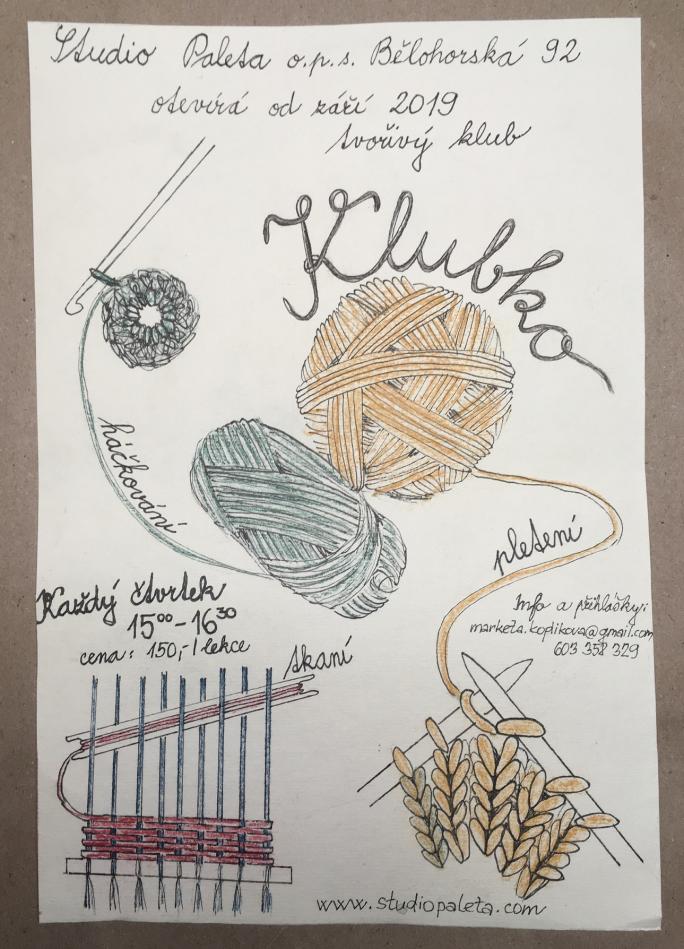 Studio Paleta o.p.s. Bělohorská 92
otevírá od září 2019
tvořivý klub
Klubko
háčkování
pletení
Každý čtvrtek
15⁰⁰-16³⁰
cena: 150,-/lekce
Info a přihlášky:
marketa.koplikova@gmail.com
603 358 329
skaní
www.studiopaleta.com